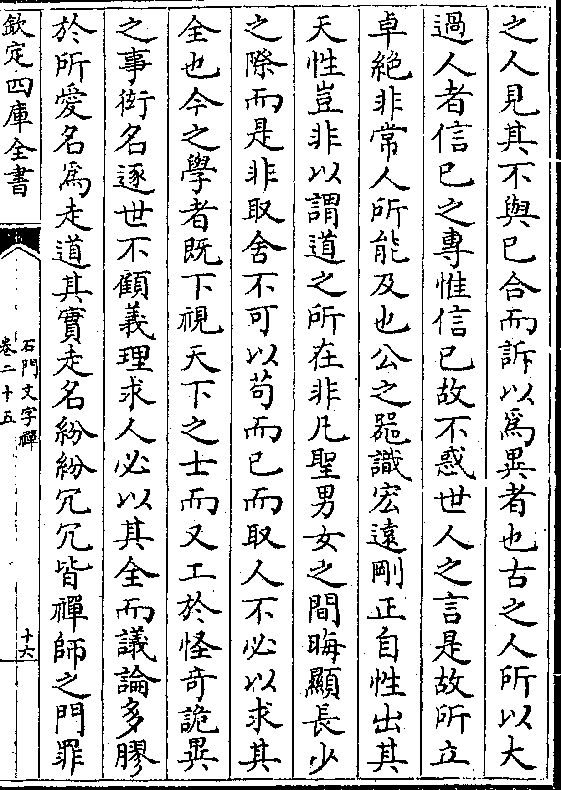 之人見其不與已合而訴以爲異者也古之人所以大
過人者信已之專惟信已故不惑世人之言是故所立
卓絶非常人所能及也公之器識宏遠剛正自性出其
天性豈非以謂道之所在非凡聖男女之間晦顯長少
之際而是非取舍不可以苟而已而取人不必以求其
全也今之學者既下視天下之士而又工於怪奇詭異
之事衒名逐世不顧義理求人必以其全而議論多膠
於所愛名爲走道其實走名紛紛冗冗皆禪師之門罪
欽定四庫全書
石門文字禪
卷二十五
十六